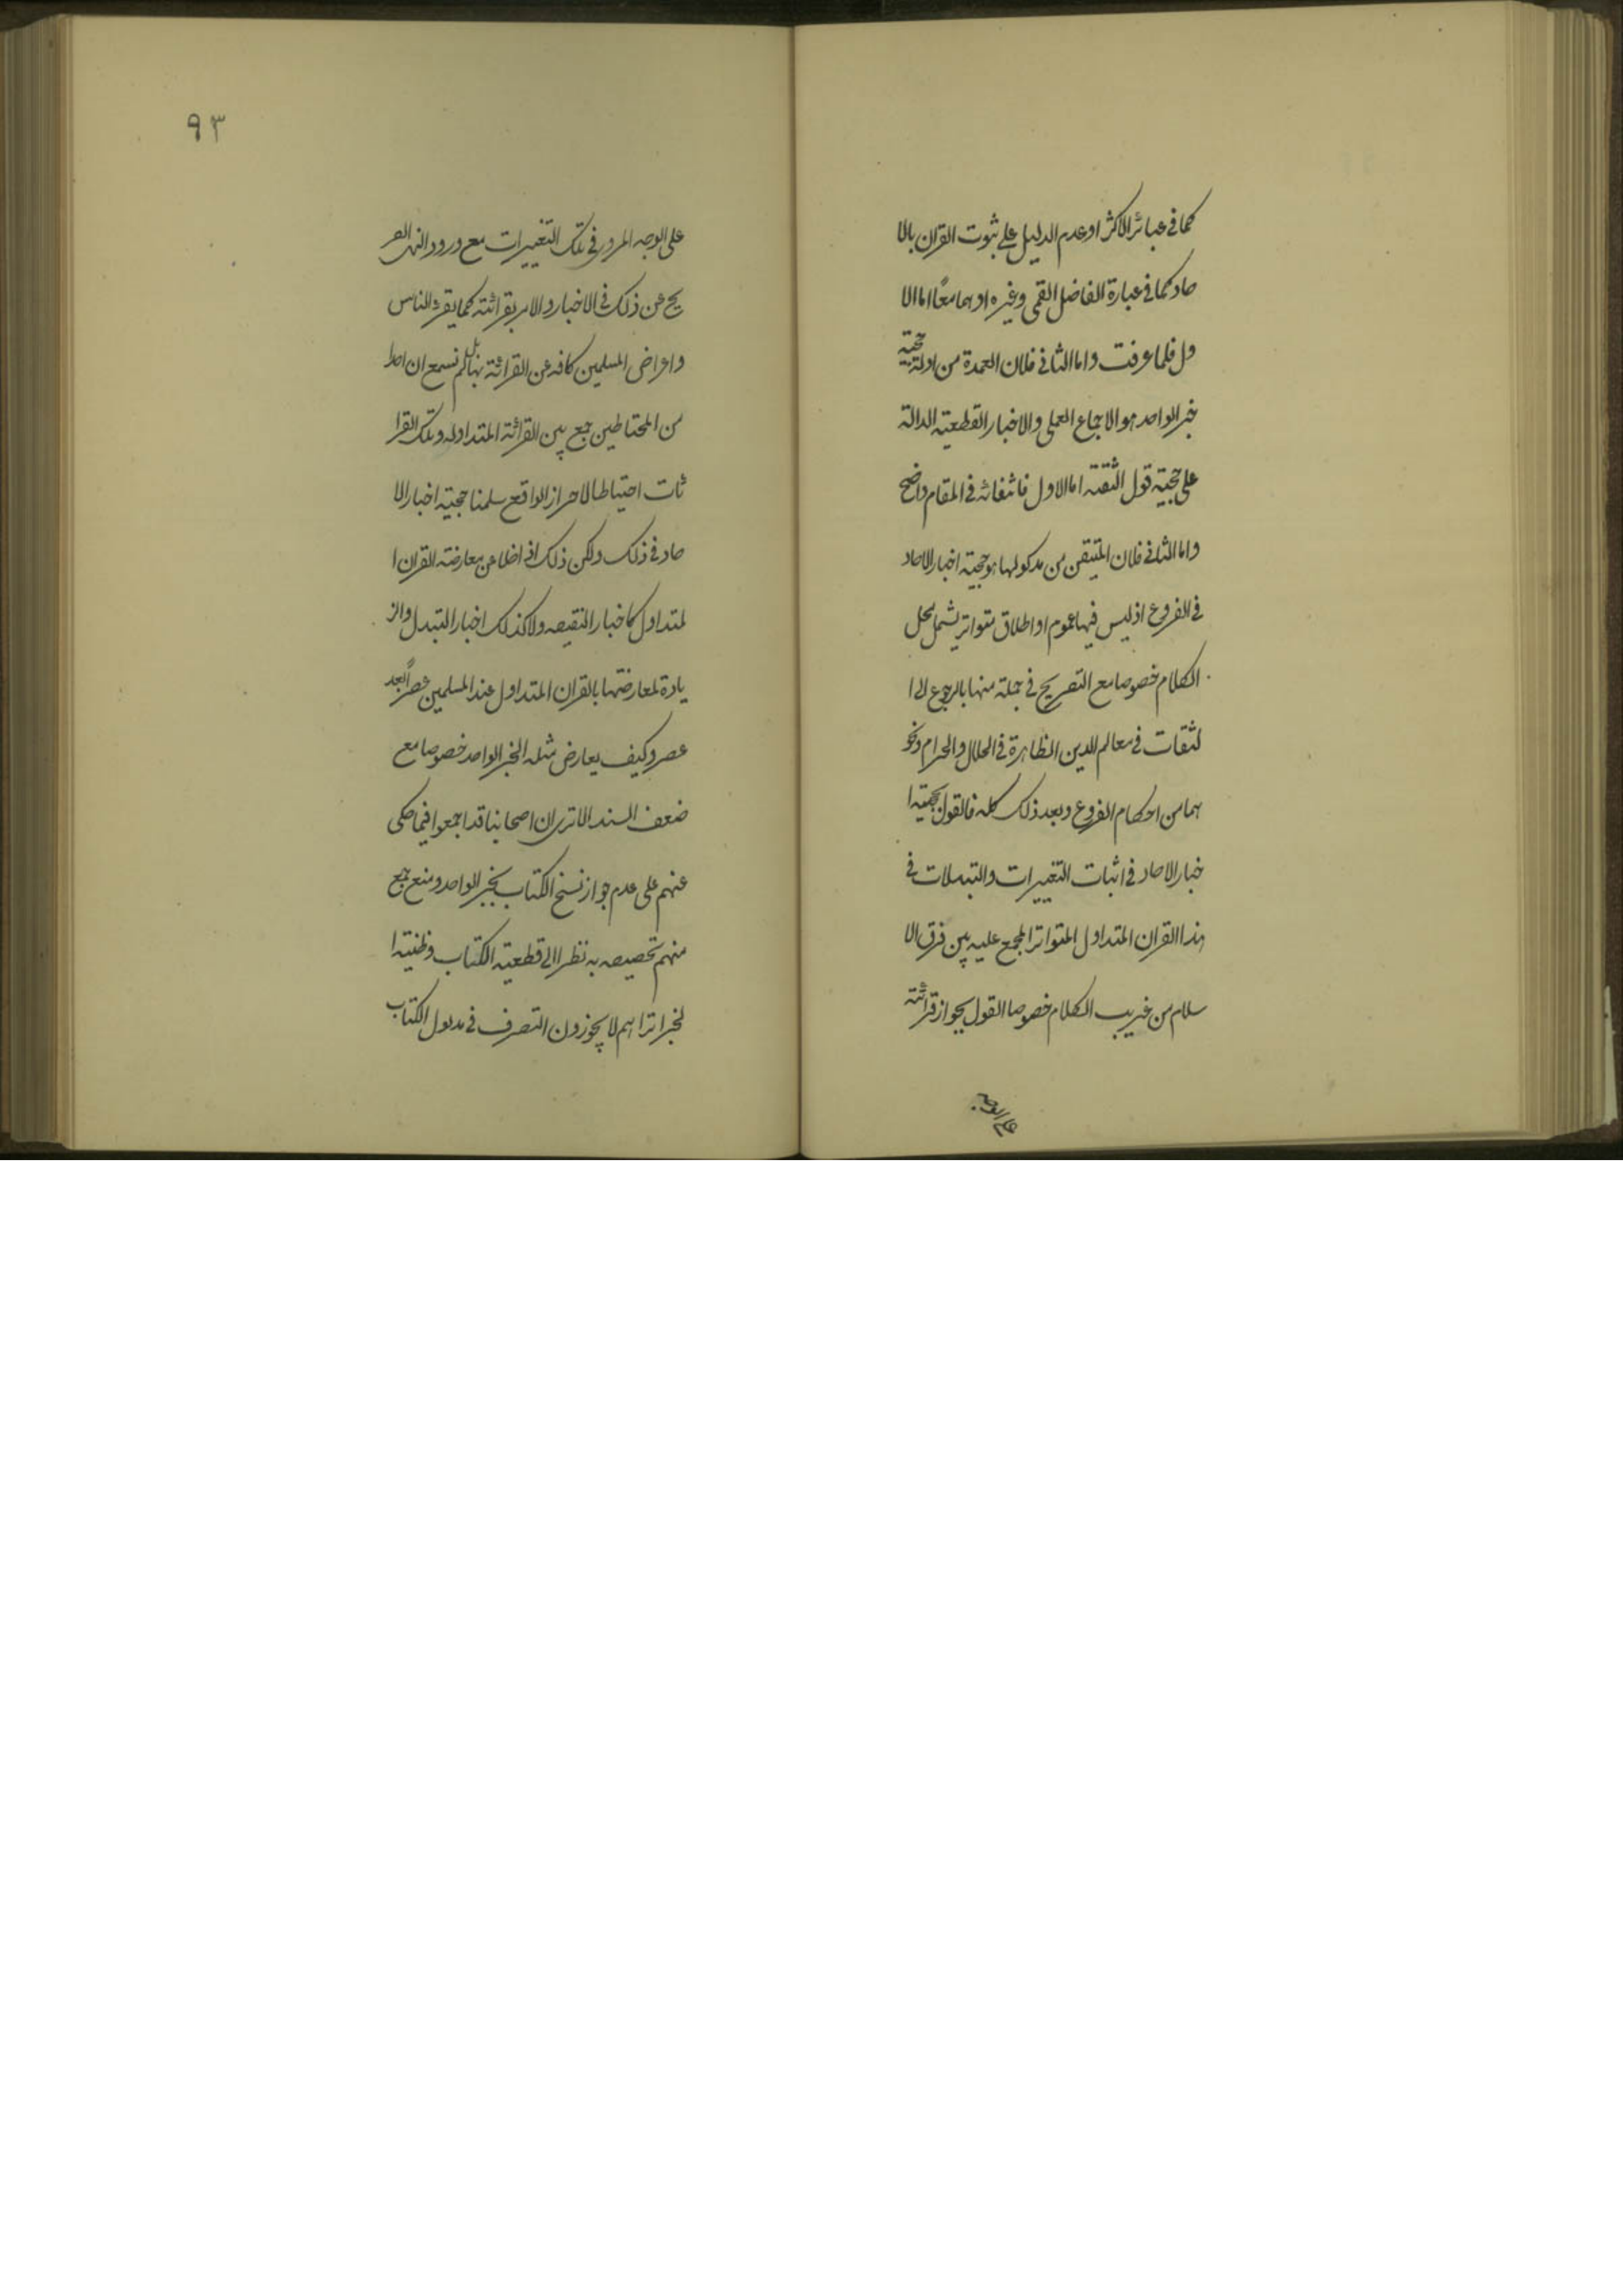 كما في عبائر الاكثر او عدم الدليل على ثبوت القران بالا
حاد كما في عبارة الفاضل القمي وغيره او هما معًا اما الا
ول فلما عرفت واما الثاني فلان العمدة من ادلة حجية
خبر الواحد هو الاجماع العملي والاخبار القطعية الدالة
على حجية قول الثقة اما الاول فانتفائه في المقام واضح
واما الثاني فلان المتيقن من مدلولها هو حجية اخبار الاحاد
في الفروع اذ ليس فيها عموم او اطلاق متواتر يشمل محل
الكلام خصوصا مع التصريح في جملة منها بالرجوع الى ا
لثقات في معالم الدين الظاهرة في الحلال والحرام ونحو
هما من احكام الفروع وبعد ذلك كله فالقول بحجية ا
خبار الاحاد في اثبات التغييرات والتبديلات في
هذا القران المتداول المتواتر المجمع عليه بين فرق الا
سلام من غريب الكلام خصوصا القول بجواز قرائته
على الوجه
٩٣
على الوجه المروي في تلك التغييرات مع ورود النهي الصر
يح عن ذلك في الاخبار والامر بقرائته كما يقرء الناس
واعراض المسلمين كافه عن القرائة بها بل لم نسمع ان احدا
من المحتاطين جمع بين القرائة المتداوله وتلك القرا
ئات احتياطا لاحراز الواقع سلمنا حجية اخبار الا
حاد في ذلك ولكن ذلك اذا خلا عن معارضة القران ا
لمتداول كاخبار النقيصه ولا كذلك اخبار التبدل والز
يادة لمعارضتها بالقران المتداول عند المسلمين عصرًا بعد
عصر وكيف يعارض مثله الخبر الواحد خصوصا مع
ضعف السند الا ترى ان اصحابنا قد اجمعوا فيما حكى
عنهم على عدم جواز نسخ الكتاب بخبر الواحد ومنع جمع
منهم تخصيصه به نظرا الى قطعية الكتاب وظنية ا
لخبر اتراهم لا يجوزون التصرف في مدلول الكتاب